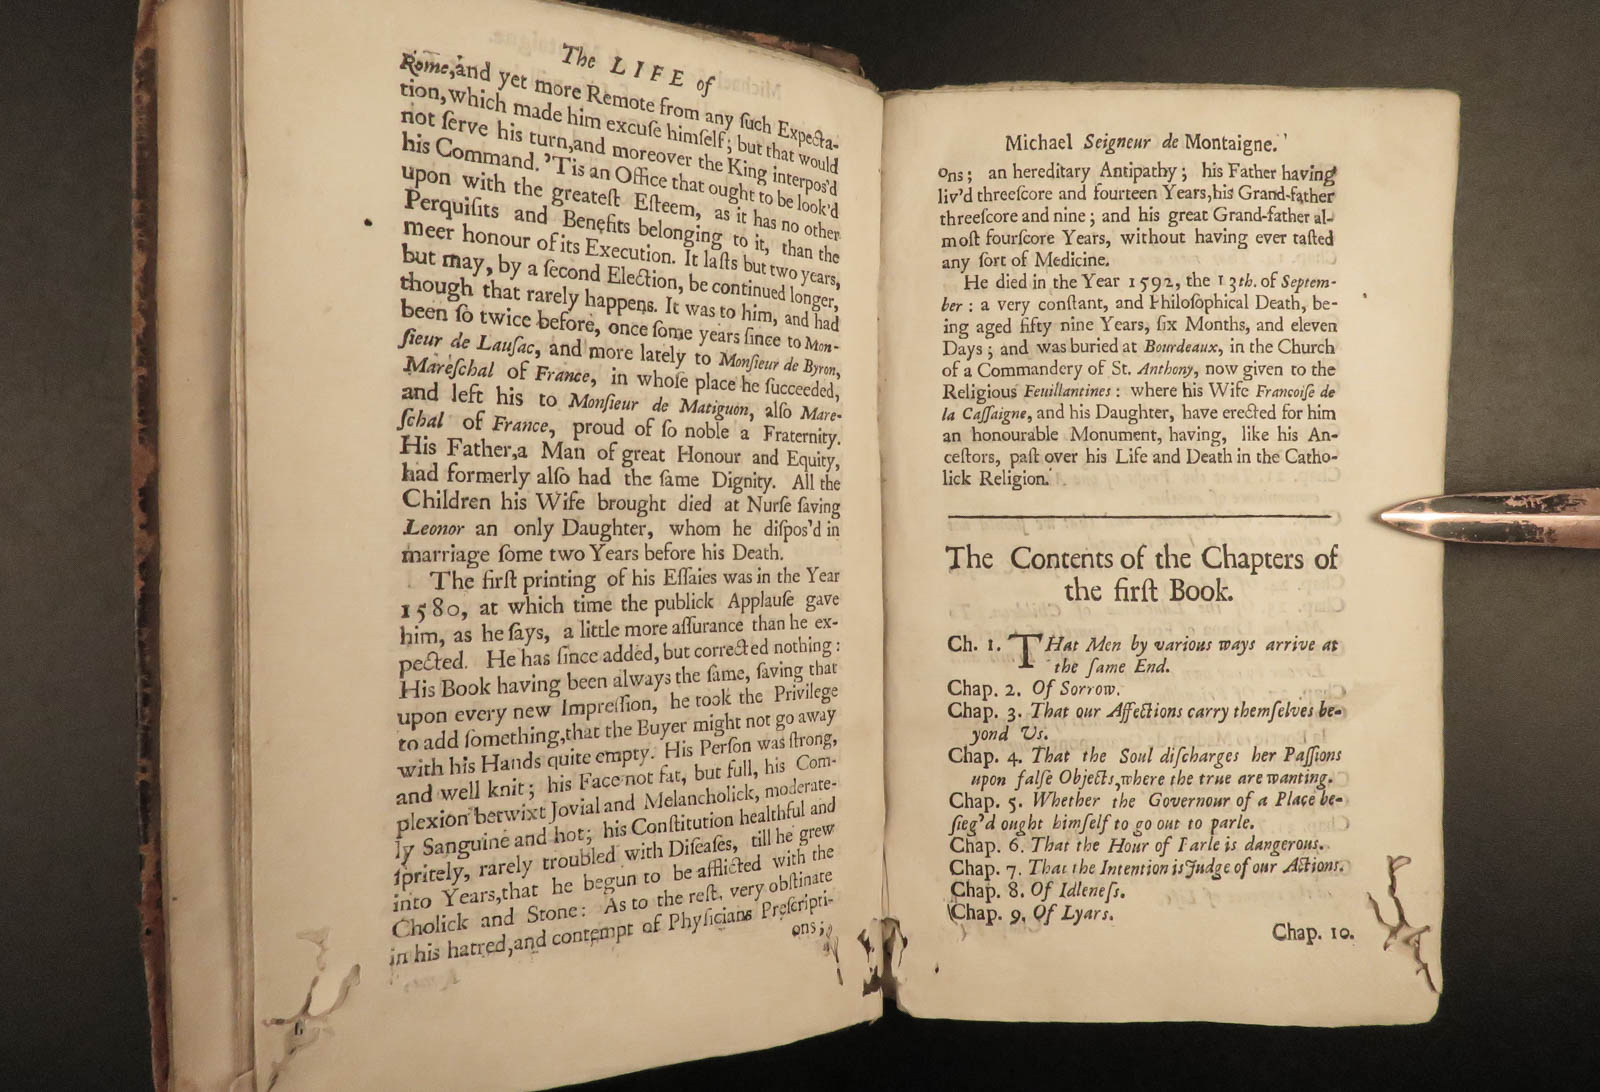 The LIFE of
Rome, and yet more Remote from any ſuch Expecta-
tion, which made him excuſe himſelf; but that would
not ſerve his turn, and moreover the King interpos'd
his Command. 'Tis an Office that ought to be look'd
upon with the greateſt Eſteem, as it has no other
Perquiſits and Benefits belonging to it, than the
meer honour of its Execution. It laſts but two years,
but may, by a ſecond Election, be continued longer,
though that rarely happens. It was to him, and had
been ſo twice before, once ſome years ſince to Mon-
ſieur de Lauſac, and more lately to Monſieur de Byron,
Mareſchal of France, in whoſe place he ſucceeded,
and left his to Monſieur de Matiguon, alſo Mare-
ſchal of France, proud of ſo noble a Fraternity.
His Father, a Man of great Honour and Equity,
had formerly alſo had the ſame Dignity. All the
Children his Wife brought died at Nurſe ſaving
Leonor an only Daughter, whom he diſpos'd in
marriage ſome two Years before his Death.
The firſt printing of his Eſſaies was in the Year
1580, at which time the publick Applauſe gave
him, as he ſays, a little more aſſurance than he ex-
pected. He has ſince added, but corrected nothing:
His Book having been always the ſame, ſaving that
upon every new Impreſſion, he took the Privilege
to add ſomething, that the Buyer might not go away
with his Hands quite empty. His Perſon was ſtrong,
and well knit; his Face not fat, but full, his Com-
plexion betwixt Jovial and Melancholick, moderate-
ly Sanguine and hot; his Conſtitution healthful and
ſpritely, rarely troubled with Diſeaſes, till he grew
into Years, that he begun to be afflicted with the
Cholick and Stone: As to the reſt, very obſtinate
in his hatred, and contempt of Phyſicians Preſcripti-
ons;
Michael Seigneur de Montaigne.
ons; an hereditary Antipathy; his Father having
liv'd threeſcore and fourteen Years, his Grand-father
threeſcore and nine; and his great Grand-father al-
moſt fourſcore Years, without having ever taſted
any ſort of Medicine.
He died in the Year 1592, the 13th. of Septem-
ber: a very conſtant, and Philoſophical Death, be-
ing aged fifty nine Years, ſix Months, and eleven
Days; and was buried at Bourdeaux, in the Church
of a Commandery of St. Anthony, now given to the
Religious Feuillantines: where his Wife Francoiſe de
la Caſſaigne, and his Daughter, have erected for him
an honourable Monument, having, like his An-
ceſtors, paſt over his Life and Death in the Catho-
lick Religion.
The Contents of the Chapters of
the firſt Book.
Ch. 1. THat Men by various ways arrive at
the ſame End.
Chap. 2. Of Sorrow.
Chap. 3. That our Affections carry themſelves be-
yond Us.
Chap. 4. That the Soul diſcharges her Paſſions
upon falſe Objects, where the true are wanting.
Chap. 5. Whether the Governour of a Place be-
ſieg'd ought himſelf to go out to parle.
Chap. 6. That the Hour of Parle is dangerous.
Chap. 7. That the Intention is Judge of our Actions.
Chap. 8. Of Idleneſs.
Chap. 9. Of Lyars.
Chap. 10.